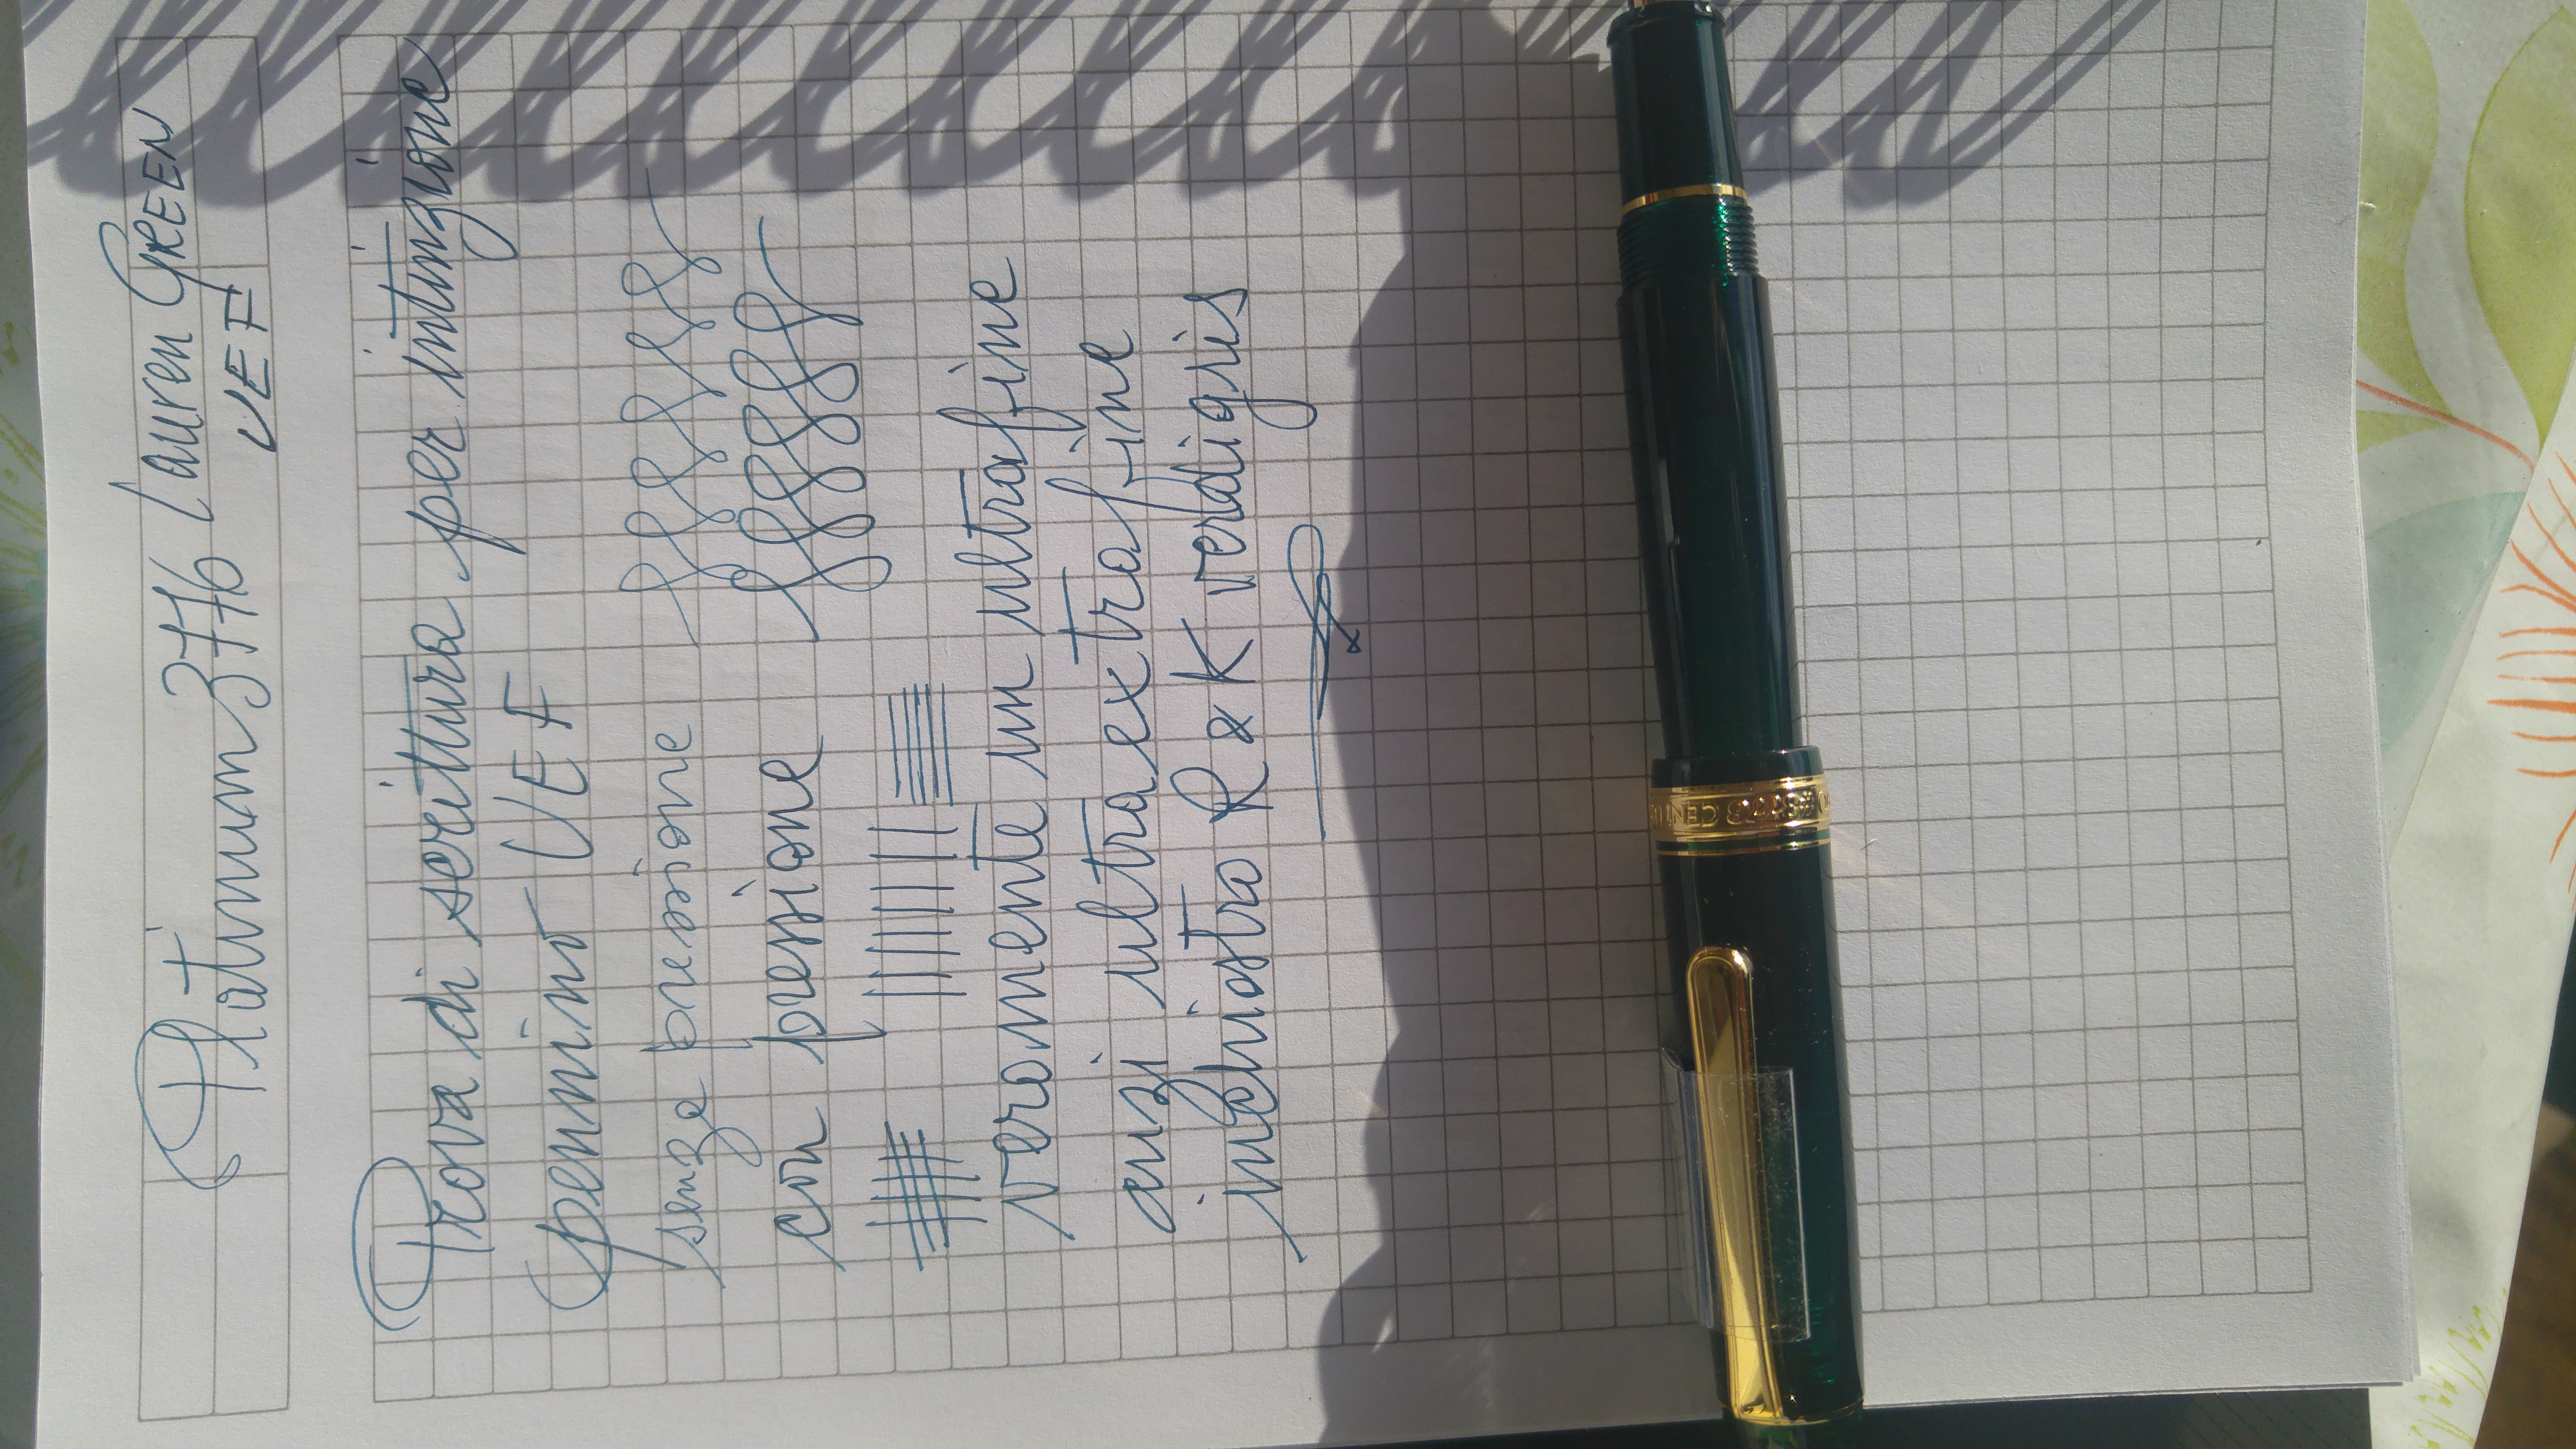 Platinum 3776 Lauren GREEN
UEF
Prova di scrittura per intinzione
pennino UEF
senza pressione
con pressione
veramente un ultrafine
anzi ultraextrafine
inchiostro R & K verdigris
#3776 CENTU